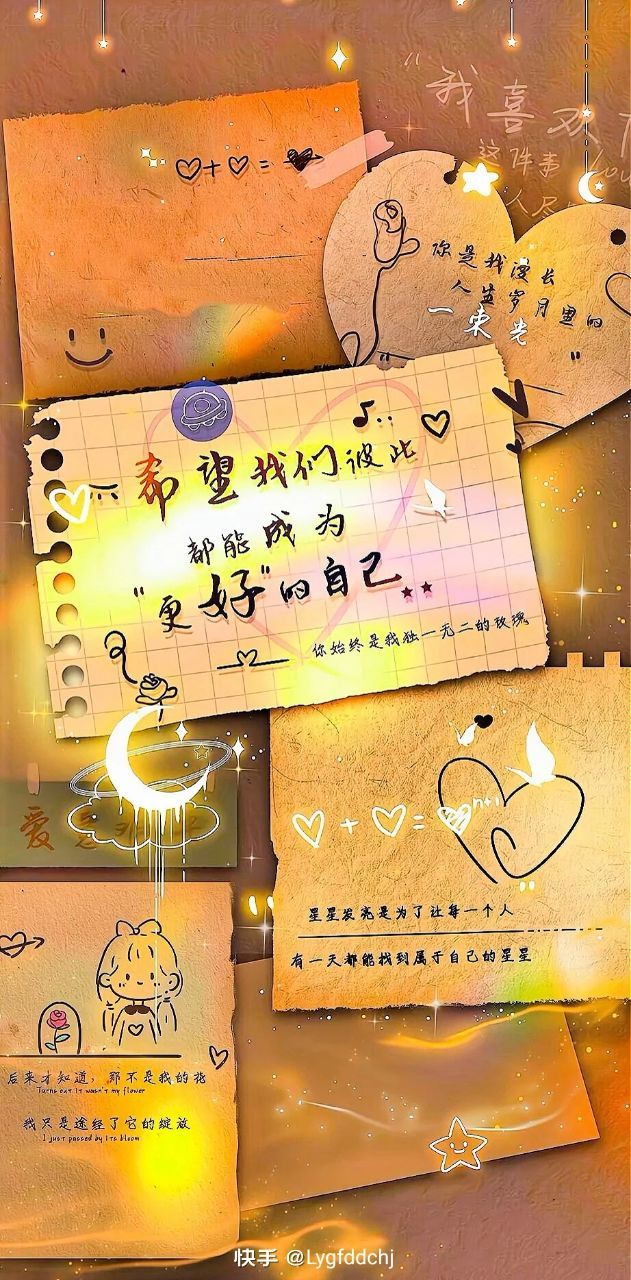 "我喜欢
这件事
人尽
你是我漫长
人生岁月里的
一束光"
希望我们彼此
都能成为
"更好"的自己
你始终是我独一无二的玫瑰
爱是
n+1
星星发亮是为了让每一个人
有一天都能找到属于自己的星星
后来才知道，那不是我的花
Turns out it wasn't my flower
我只是途经了它的绽放
I just passed by its bloom
快手 @Lygfddchj